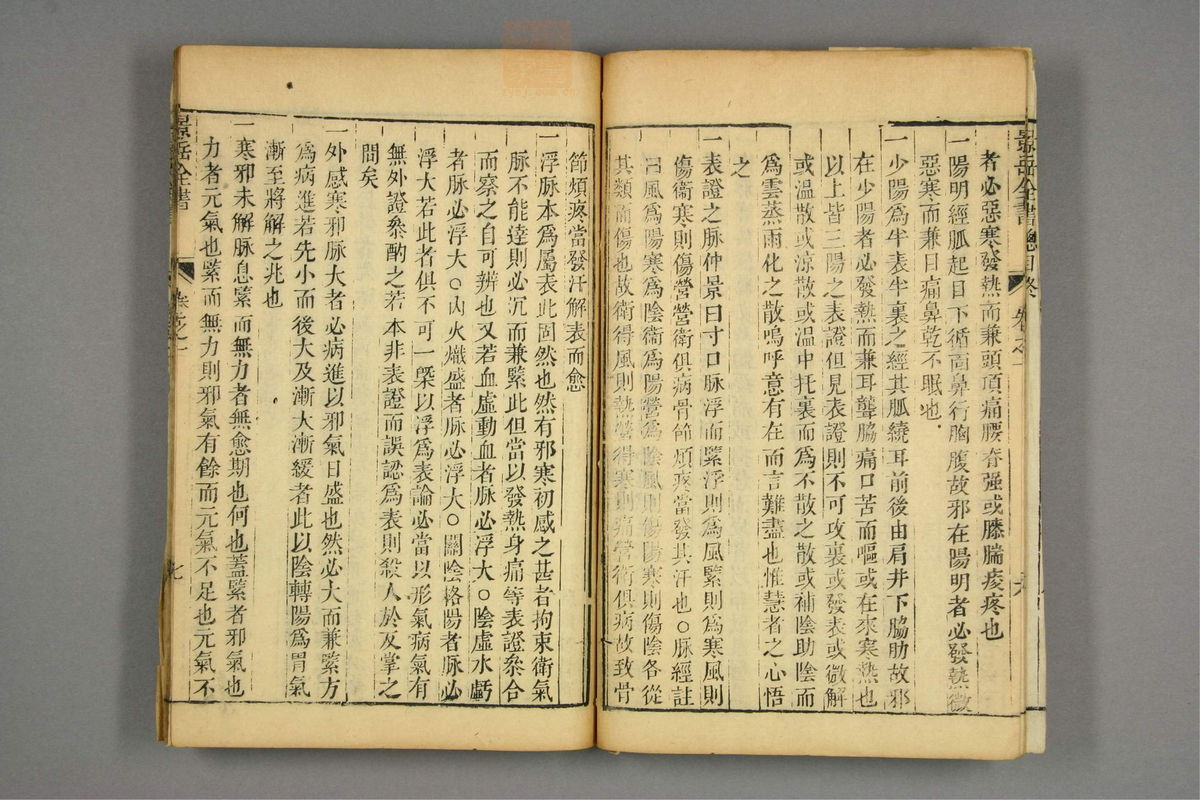 景岳全書總目終 卷之一 六
者必惡寒發熱而兼頭頂痛腰脊强或膝腨痠疼也
一陽明經脈起目下循面鼻行胸腹故邪在陽明者必發熱微
惡寒而兼目痛鼻乾不眠也
一少陽爲半表半裏之經其脈繞耳前後由肩井下脇肋故邪
在少陽者必發熱而兼耳聾脇痛口苦而嘔或往來寒熱也
以上皆三陽之表證但見表證則不可攻裏或發表或微解
或溫散或凉散或溫中托裏而爲不散之散或補陰助陰而
爲雲蒸雨化之散嗚呼意有在而言難盡也惟慧者之心悟
之
一表證之脈仲景曰寸口脈浮而緊浮則爲風緊則爲寒風則
傷衞寒則傷營營衞俱病骨節煩疼當發其汗也○脈經註
曰風爲陽寒爲陰衞爲陽營爲陰風則傷陽寒則傷陰各從
其類而傷也故衞得風則熱營得寒則痛營衞俱病故致骨
節煩疼當發汗解表而愈
一浮脈本爲屬表此固然也然有邪寒初感之甚者拘束衞氣
脈不能達則必沉而兼緊此但當以發熱身痛等表證參合
而察之自可辨也又若血虛動血者脈必浮大○陰虛水虧
者脈必浮大○內火熾盛者脈必浮大○關陰格陽者脈必
浮大若此者俱不可一槩以浮爲表論必當以形氣病氣有
無外證參酌之若本非表證而誤認爲表則殺人於反掌之
間矣
一外感寒邪脈大者必病進以邪氣日盛也然必大而兼緊方
爲病進若先小而後大及漸大漸緩者此以陰轉陽爲胃氣
漸至將解之兆也
一寒邪未解脈息緊而無力者無愈期也何也蓋緊者邪氣也
力者元氣也緊而無力則邪氣有餘而元氣不足也元氣不
景岳全書 卷之一 七